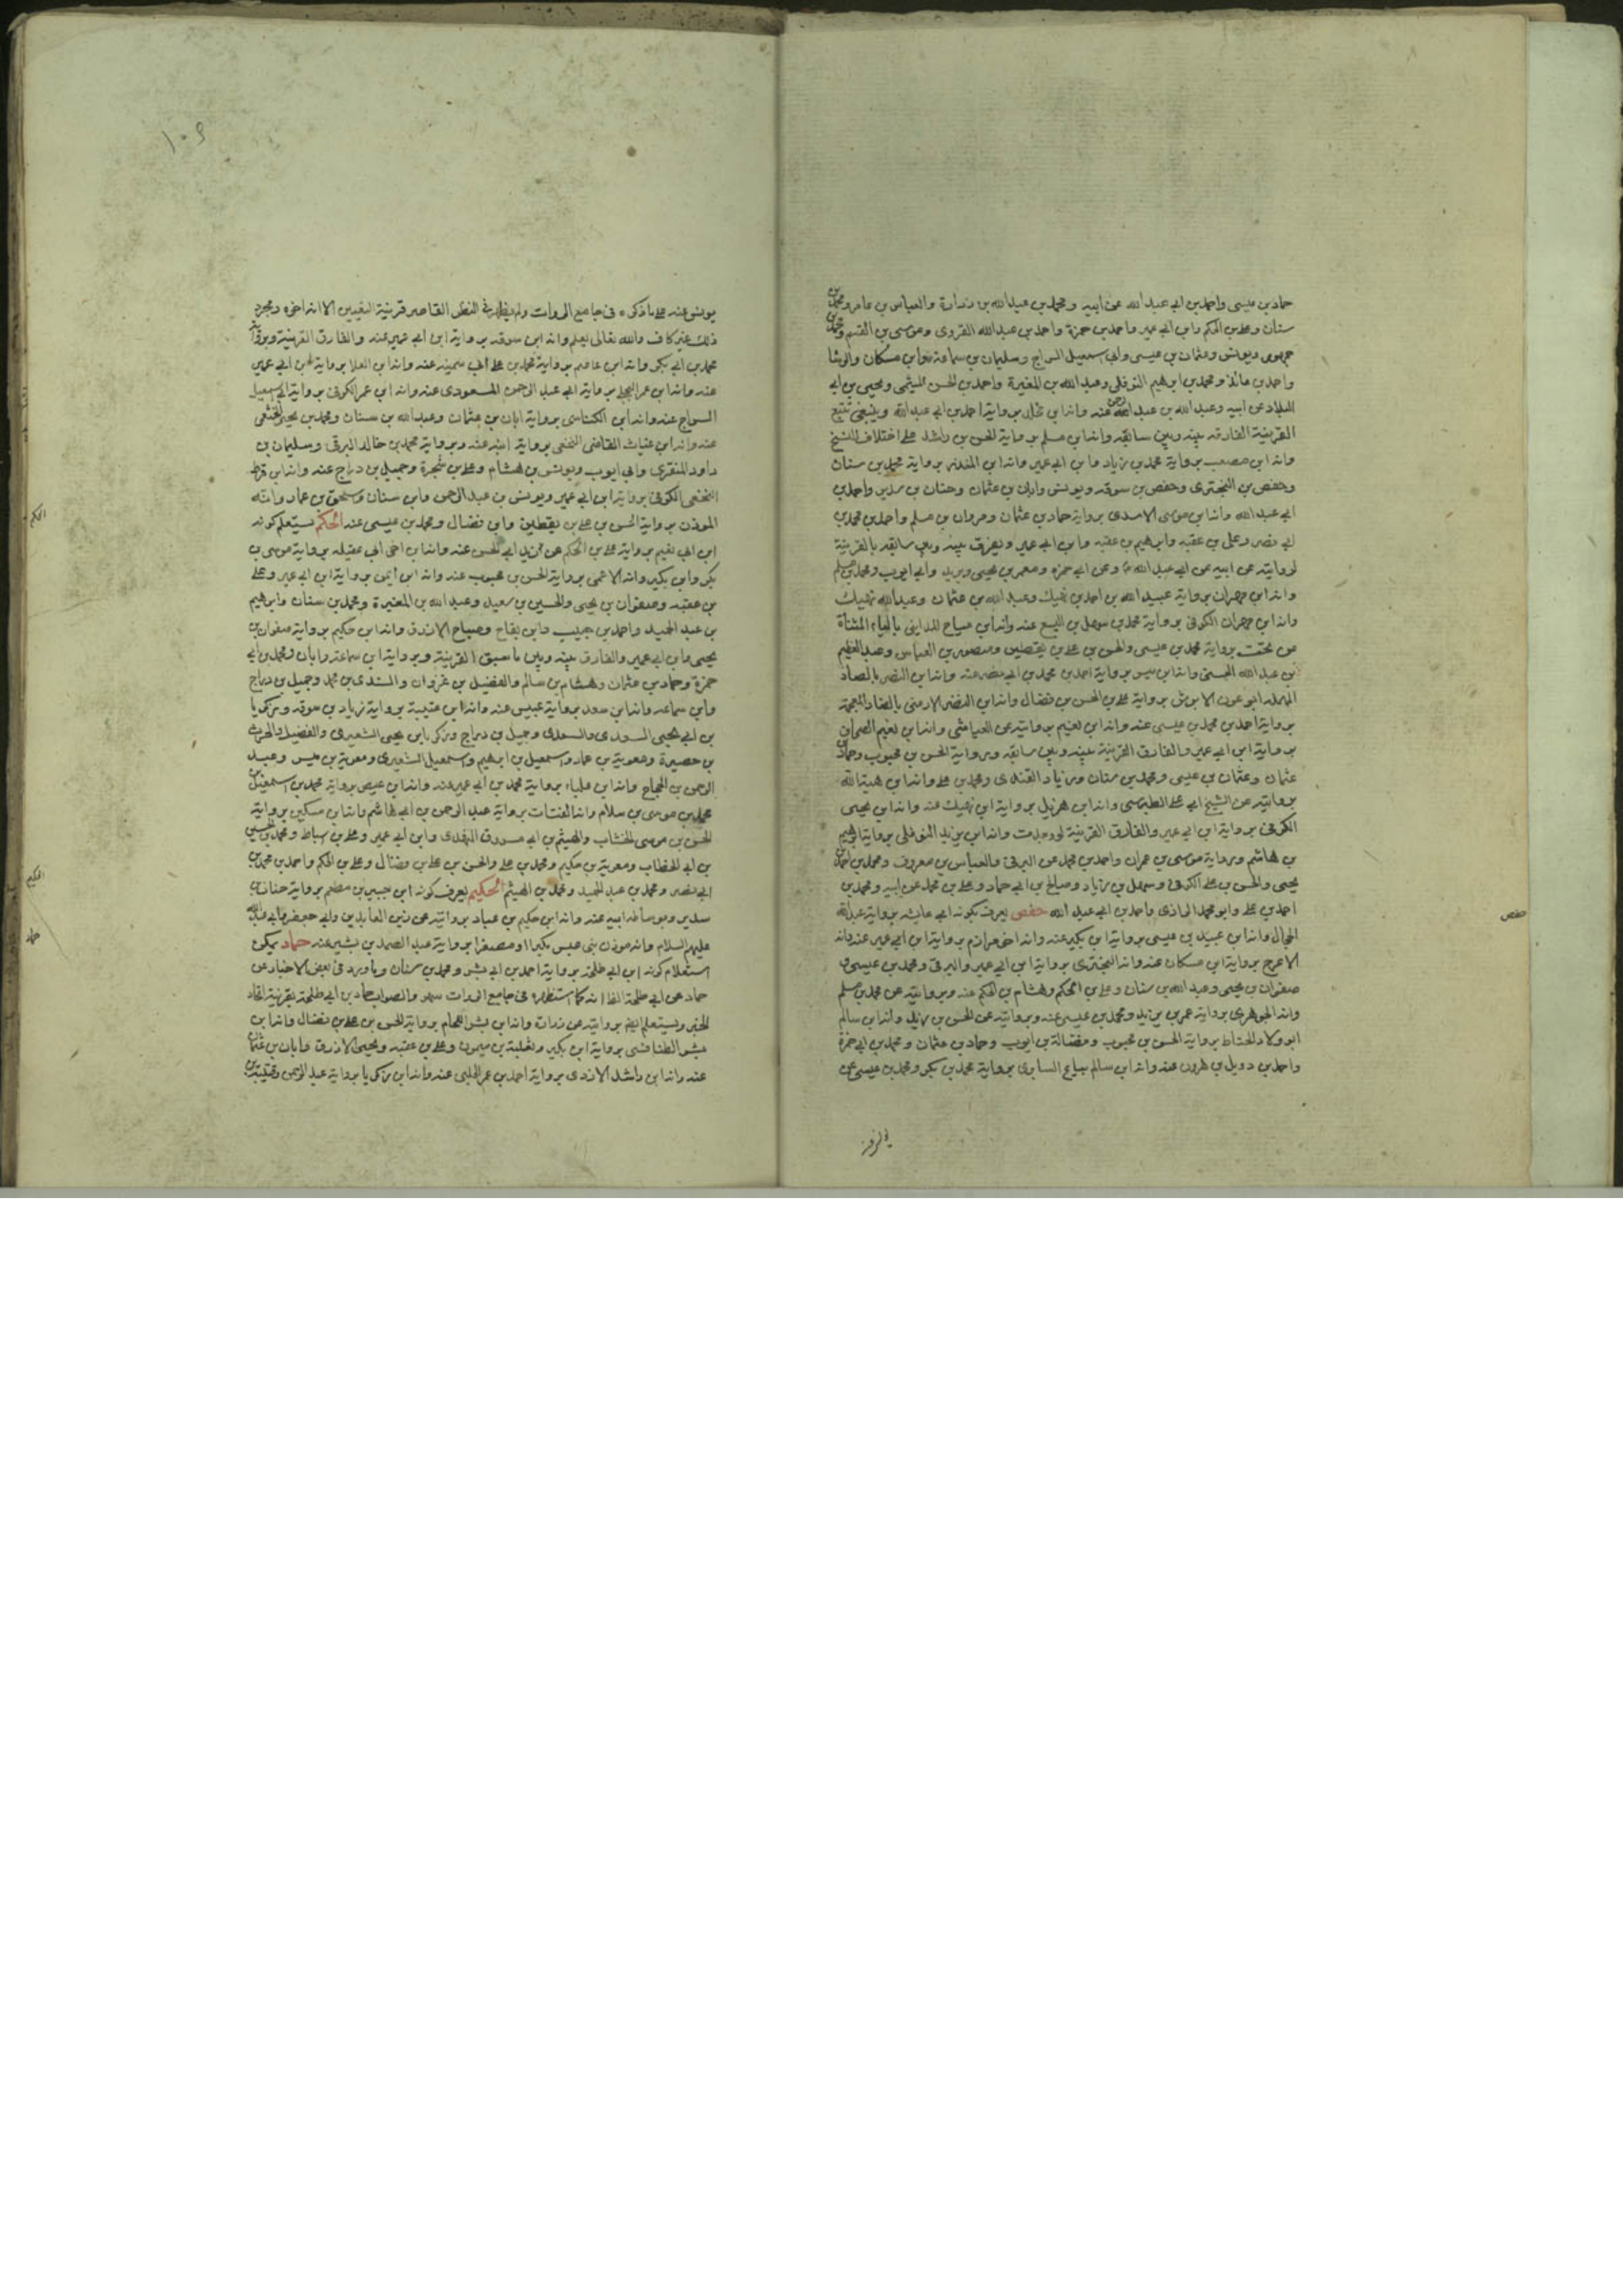 حماد بن عيسى واحمد بن ابي عبد الله عن ابيه ومحمد بن عبد الله بن زرارة والعباس بن عامر ومحمد بن
سنان وعلي بن الحكم وابن ابي عمير واحمد بن حمزة واحمد بن عبد الله القروى وموسى بن القسم ومحمد بن
جمهور ويونس وعثمان بن عيسى وابي اسمعيل السراج وسليمان بن سماعة وابن مسكان والوشا
واحمد بن عائذ ومحمد بن ابرهيم النوفلى وعبد الله بن المغيرة واحمد بن الحسن الميثمى ويحيى بن ابي
البلاد عن ابيه وعبد الله بن عبد الرحمن عنه وانه ابن برواية احمد بن ابي عبد الله وينبغى تتبع
القرينة الفارقه بينه وبين سابقه وانه ابن مسلم برواية الحسن بن راشد على اختلاف النسخ
وانه ابن مصعب برواية محمد بن زياد وابن ابي عمير وانه ابن المنذر برواية محمد بن سنان
وحفص بن البخترى وحفص بن سوقه ويونس وابان بن عثمان وحنان بن سدير واحمد بن
ابي عبد الله وانه ابن موسى الاسدى برواية حماد بن عثمان ومروان بن مسلم واحمد بن محمد بن
ابي نصر وعلى بن عقبه وابرهيم بن عقبه وابن ابي عمير ويعرف بينه وبين سابقه بالقرينة
لروايته عن ابيه عن ابي عبد الله وعن ابي حمزه ومعمر بن يحيى وبريد وابي ايوب ومحمد بن مسلم
وانه ابن مهران برواية عبيد الله بن احمد بن نهيك وعبد الله بن عثمان وعبد الله نهيك
وانه ابن مهران الكوفى برواية محمد بن سهل بن اليسع عنه وانه ابن مياح المداينى بالياء المثناة
من تحت برواية محمد بن عيسى والحسن بن على بن يقطين ومنصور بن العباس وعبد العظيم
بن عبد الله الحسنى وانه ابن برواية احمد بن محمد بن ابي نصر عنه وانه ابن النصر بالصاد
المهمله ابو عون الابرش برواية على بن الحسن بن فضال وانه ابن النضر الارمنى بالضاد المعجمة
برواية احمد بن محمد بن عيسى عنه وانه ابن نعيم بروايته عن العباسى وانه ابن نعيم الصحاف
برواية ابن ابي عمير والفارق القرينة بينه وبين سابقه وبرواية الحسن بن محبوب وحماد بن
عثمان وعثمان بن عيسى ومحمد بن سنان وزياد القندى ومحمد بن على وانه ابن هبة الله
بروايته عن الشيخ ابي على الطبرسى وانه ابن هزيل برواية ابن نهيك عنه وانه ابن يحيى
الكوفى برواية ابن ابي عمير والفارق القرينة لو وجدت وانه ابن يزيد النوفلى برواية ابرهيم
بن هاشم وبرواية موسى بن عمران واحمد بن محمد عن البرقى والعباس بن معروف ومحمد بن احمد بن
يحيى والحسن بن على الكوفى وسهل بن زياد وصالح بن ابي حماد وعلى بن محمد عن ابيه ومحمد بن
احمد بن على وابو محمد الرازى واحمد بن ابي عبد الله حفص يعرف بكونه ابي عايشه برواية عبد الله
الحجال وانه ابن عبيد بن عيسى برواية ابن بكير عنه وانه اخى مرازم برواية ابن ابي عمير عنه وانه
الاعرج برواية ابن مسكان عنه وانه البخترى برواية ابن ابي عمير والبرقى ومحمد بن عيسى و
صفوان بن يحيى وعبد الله بن سنان وعلى بن الحكم وهشام بن الحكم عنه وبروايته عن محمد بن مسلم
وانه الجوهرى برواية عمر بن يزيد ومحمد بن عيسى عنه وبروايته عن الحسن بن وانه ابن سالم
ابو ولاد الحناط برواية الحسن بن محبوب وفضالة بن ايوب وحماد بن عثمان ومحمد بن ابي حمزة
واحمد بن دويل بن هرون عنه وانه ابن سالم بياع السابرى برواية محمد بن بكر ومحمد بن عيسى عن
حفص
يونس عنه
يونس عنه على ما ذكره فى جامع الروات ولم يظهر فى النظر القاصر قرينة التعيين الا انه اخوه ومجرد
ذلك غير كاف والله تعالى يعلم وانه ابن سوقه برواية ابن ابي عمير عنه والفارق القرينة وبرواية
محمد بن ابي بكر وانه ابن عاصم برواية محمد بن على ابي سمينه عنه وانه ابن العلا برواية ابن ابي عمير
عنه وانه ابن عمر البجلى برواية ابي عبد الرحمن المسعودى عنه وانه ابن عمر الكوفى برواية ابي اسمعيل
السراج عنه وانه ابن الكناسى برواية ابان بن عثمان وعبد الله بن سنان ومحمد بن يحيى الخثعمى
عنه وانه ابن غياث القاضى النخعى برواية ابنه عنه وبرواية محمد بن خالد البرقى وسليمان بن
داود المنقرى وابي ايوب ويونس بن هشام وعلى بن شجرة وجميل بن دراج عنه وانه ابن قرط
النخعى الكوفى برواية ابن ابي عمير ويونس بن عبد الرحمن وابن سنان واسحق بن عمار وانه
الموذن برواية الحسن بن على بن يقطين وابن فضال ومحمد بن عيسى عنه الحكم يستعلم كونه
ابن ابي نعيم برواية على بن الحكم عن ابي الحسن عنه وانه ابن اخى ابي عقيله برواية موسى بن
بكر وابن بكير وانه الاعمى برواية الحسن بن محبوب عنه وانه ابن أيمن برواية ابن ابي عمير وعلى
بن عقبه وصفوان بن يحيى والحسين بن سعيد وعبد الله بن المغيرة ومحمد بن سنان وابرهيم
بن عبد الحميد واحمد بن حبيب وابن بقاح وصباح الازرق وانه ابن حكيم برواية صفوان بن
يحيى وابن ابي عمير والفارق بينه وبين ما سبق القرينة وبرواية ابن سماعة وابان ومحمد بن ابي
حمزة وحماد بن عثمان وهشام بن سالم والفضيل بن غزوان والسندى بن محمد وجميل بن دراج
وابن سماعه وانه ابن سعد برواية عبيس عنه وانه ابن عتيبة برواية زياد بن سوقه وزكريا
بن ابي يحيى السعدى والسعدى وجميل بن دراج وزكريا بن يحيى الشعيرى والفضيل والحرث
بن حصيرة ومعوية بن عمار واسمعيل بن ابرهيم واسمعيل الشعيرى ومعوية بن ميسر وعبد
الرحمن بن الحجاج وانه ابن علباء برواية محمد بن ابي عمير عنه وانه ابن عيص برواية محمد بن اسمعيل عن
محمد بن موسى بن سلام وانه القتات برواية عبد الرحمن بن ابي هاشم وانه ابن مسكين برواية
الحسن بن موسى الخشاب والهيثم بن ابي مسروق النهدى وابن ابي عمير وعلى بن اسباط ومحمد بن الحسين
بن ابي الخطاب ومعوية بن حكيم ومحمد بن على والحسن بن على بن فضال وعلى بن الحكم واحمد بن محمد بن
ابي نصر ومحمد بن عبد الحميد ومحمد بن الهيثم الحكيم يعرف كونه ابن جبير بن مطعم برواية حنان بن
سدير وبوساطه ابيه عنه وانه ابن حكيم بن عباد بروايته عن زين العابدين وابي جعفر وابي عبد الله
عليهم السلام وانه موذن بنى عبس مكبرا او مصغرا برواية عبد الصمد بن بشير عنه حماد يمكن
استعلام كونه ابن ابي طلحة برواية احمد بن ابي بشر ومحمد بن سنان وما ورد فى بعض الاخبار عن
حماد عن ابي طلحة الظا انه كما استظهره فى جامع الروات سهو والصواب حماد بن ابي طلحة بقرينة اتحاد
الخبر ويستعلم ايضا بروايته عن زرارة وانه ابن بشر اللحام برواية الحسن بن على بن فضال وانه ابن
بشر الطنافسى برواية ابن بكير وثعلبة بن ميمون وعلى بن عقبه ويحيى الازرق وابان بن عثمان
عنه وانه ابن راشد الازدى برواية احمد بن عمر الحلبى عنه وانه ابن زكريا برواية عبد الرحمن وقتيبة بن
الحكم
الحكيم
حماد